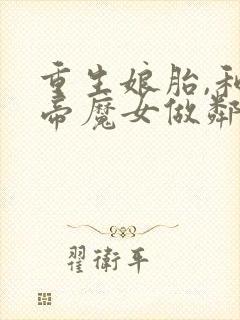 重生娘胎,和
帝魔女做鄰
翟衛平